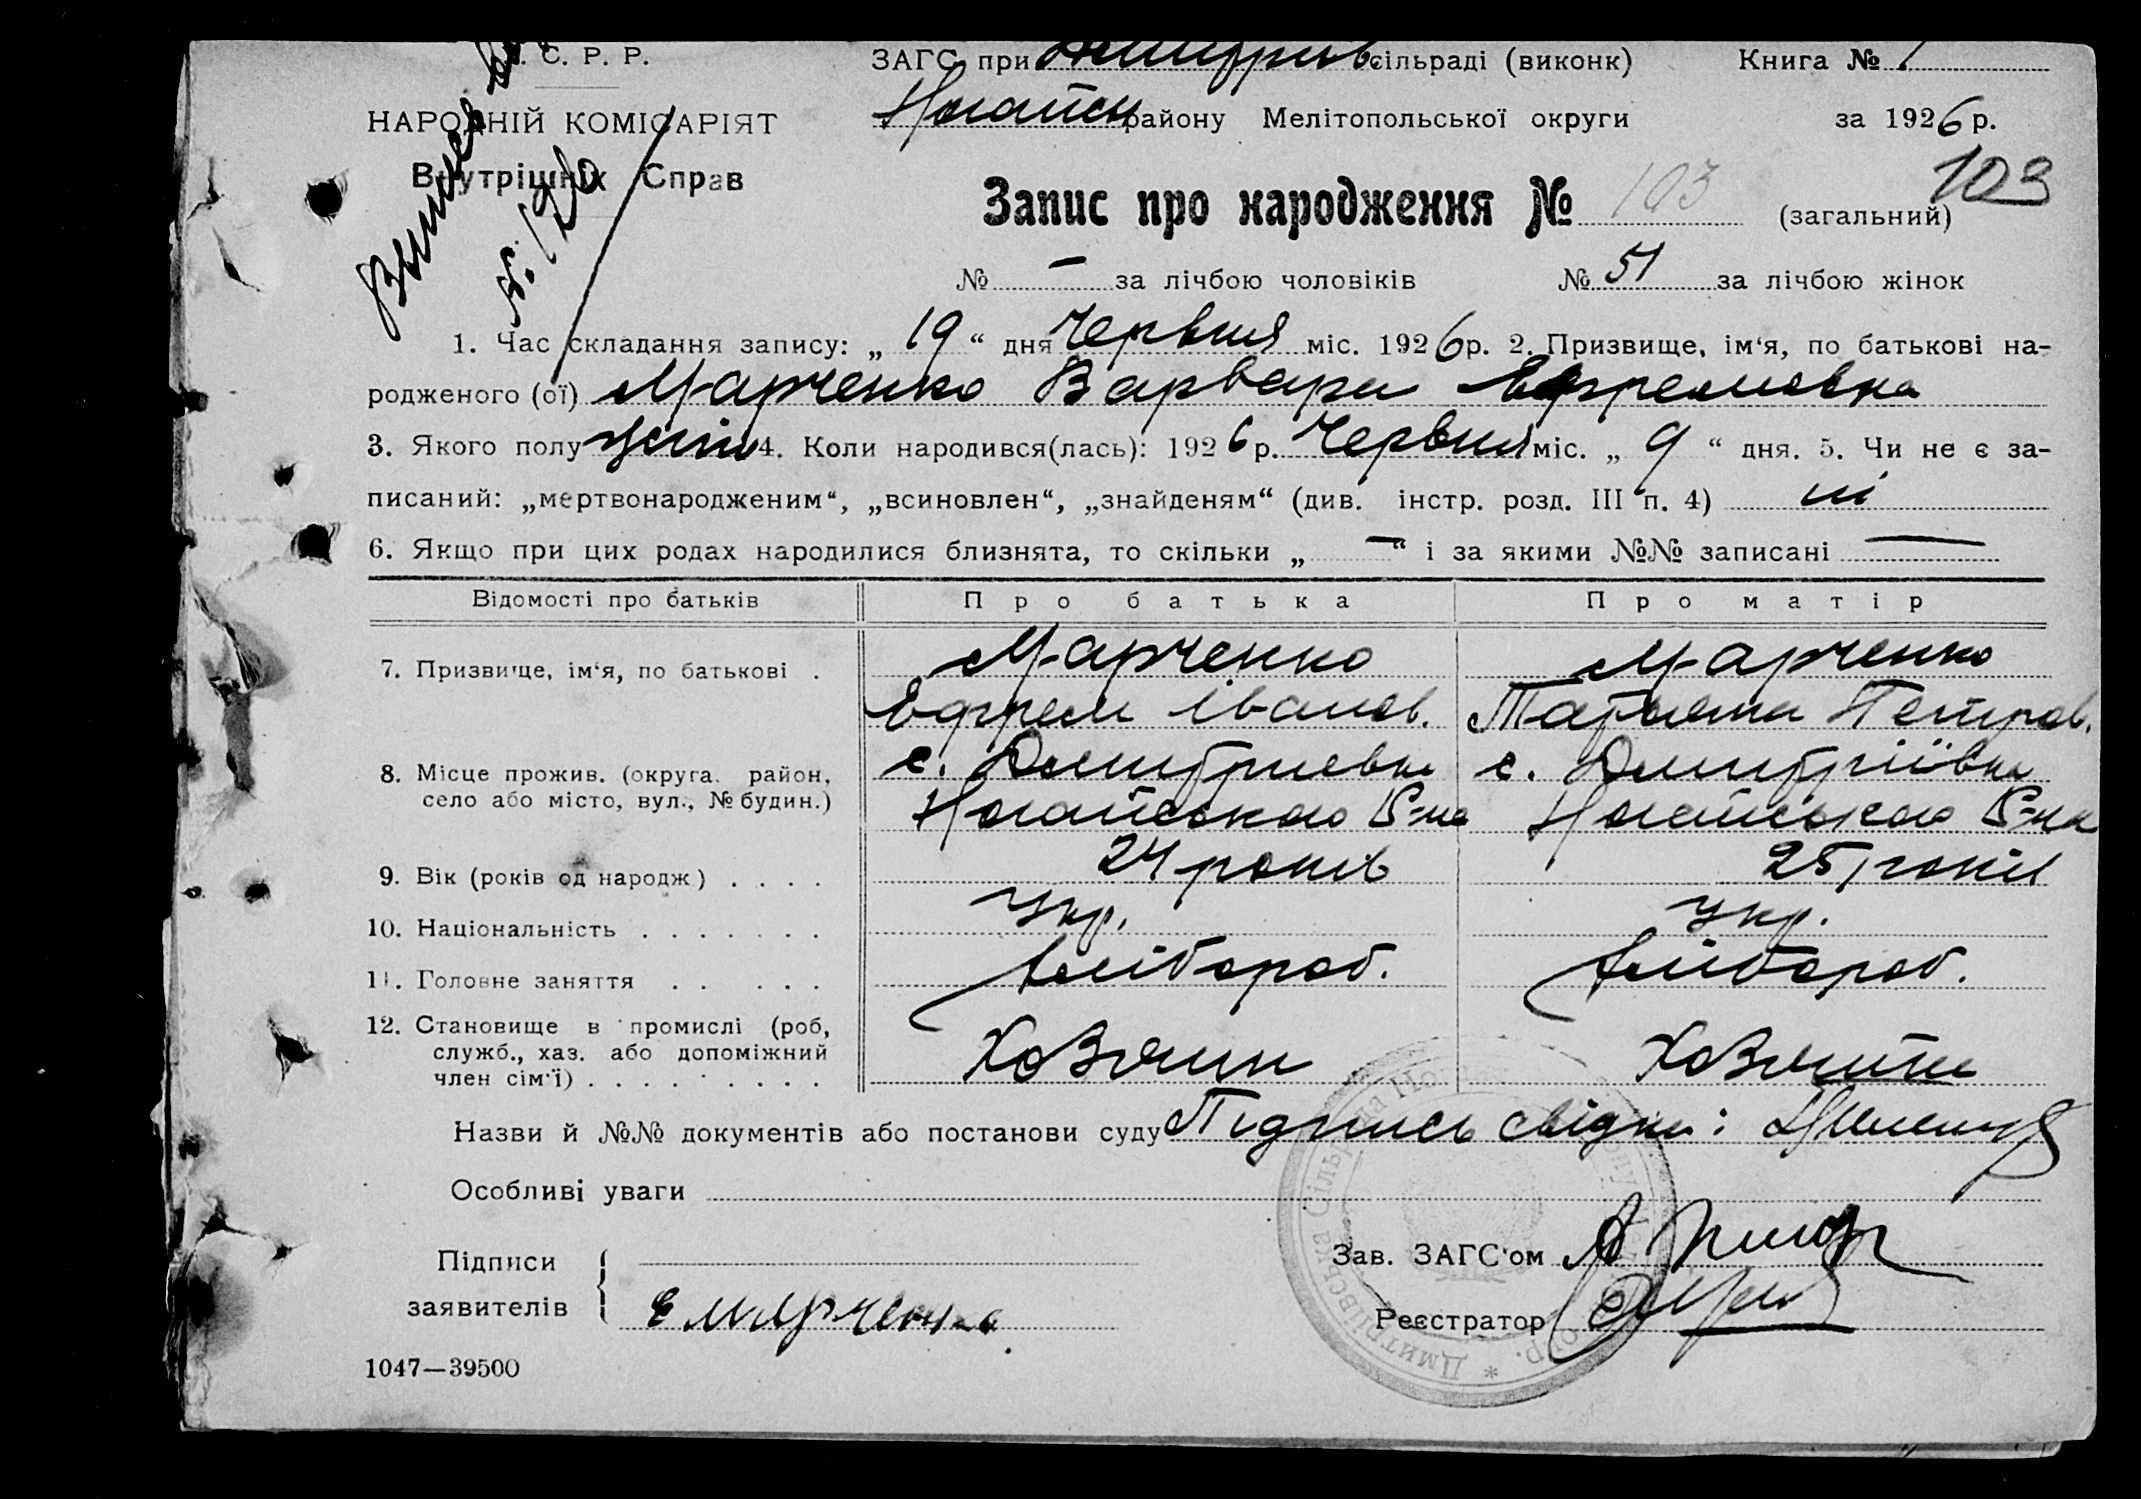 С. Р. Р. ЗАГС при Дмитрив. сільраді (виконк) Книга № 1
НАРОДНІЙ КОМІСАРІЯТ Ногайськ району Мелітопольської округи за 1926 р.
Внутрішніх Справ
103
Запис про народження № 103 (загальний)
№ — за лічбою чоловіків № 51 за лічбою жінок
1. Час складання запису: „ 19 “ дня Червня міс. 1926 р. 2. Призвище, ім‘я, по батькові на-
родженого (ої) Марченко Варвара Ефремовна
3. Якого полу жіно 4. Коли народився(лась): 1926 р. Червня міс. „ 9 “ дня. 5. Чи не є за-
писаний: „мертвонародженим“, „всиновлен“, „знайденям“ (див. інстр. розд. III п. 4) ні
6. Якщо при цих родах народилися близнята, то скільки „ — “ і за якими №№ записані —
Відомості про батьків Про батька Про матір
7. Призвище, ім‘я, по батькові . Марченко Марченко
Ефрем Іванов. Татьяна Петров.
8. Місце прожив. (округа, район, с. Дмитриевка с. Дмитріївка
село або місто, вул., № будин.) Ногайського Р-на Ногайського Р-на
9. Вік (років од народж) . . . . 24 років 25 років
10. Національність . . . . . . . Укр. Укр.
11. Головне заняття . . . . . Хлібороб. Хлібороб.
12. Становище в промислі (роб,
служб., хаз. або допоміжний
член сім‘ї) . . . . . . . . . Хозяин Хозяйка
Назви й №№ документів або постанови суду Підпись свідки:
Особливі уваги
Підписи
заявителів Е Марченко
Зав. ЗАГС‘ом
Реєстратор
Дмитрівська Сільрада
1047—39500